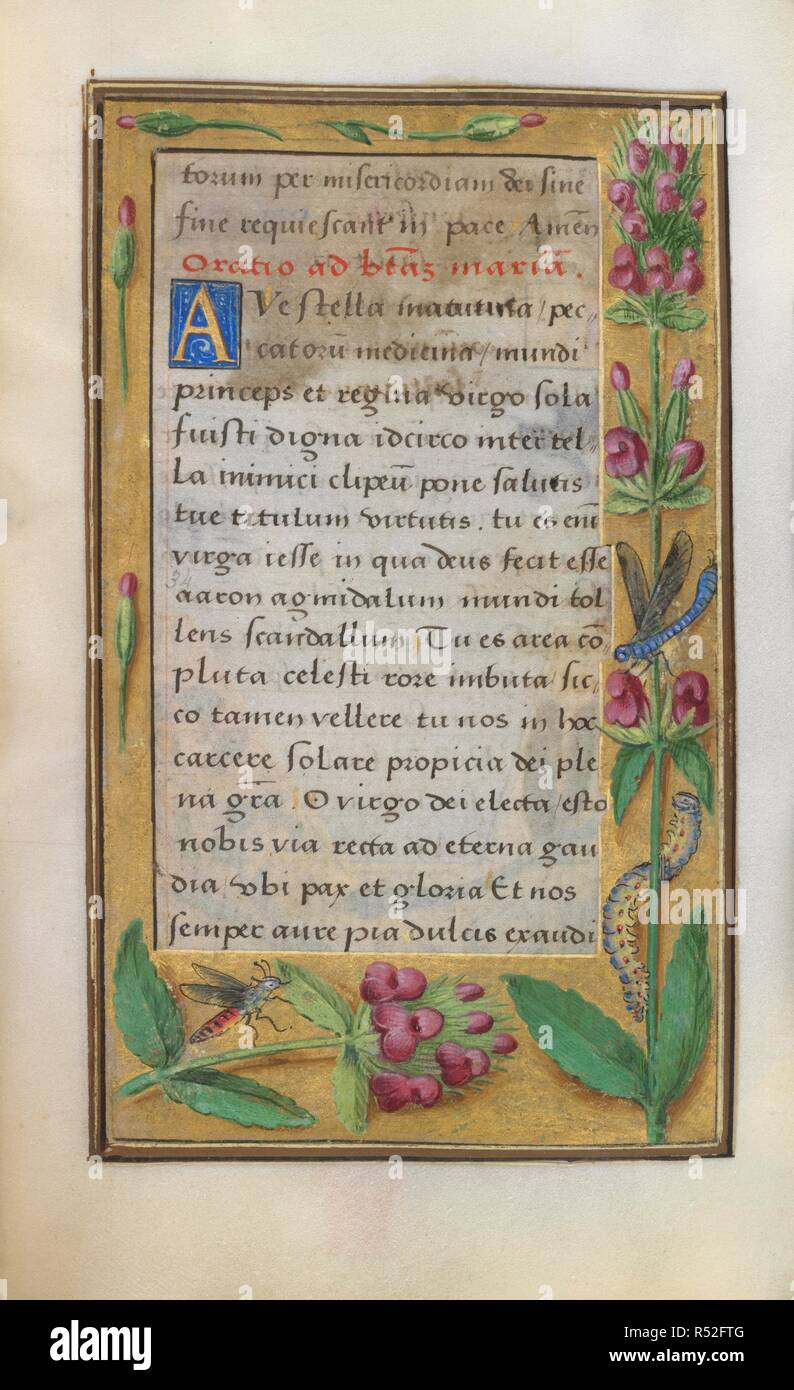 torum per misericordiam dei sine
fine requiescant in pace Amen̄
Oratio ad btā̄z mariā.
AVe stella matutina / pec-
catorū medicina / mundi
princeps et regina virgo sola
fuisti digna idcirco inter tel-
la inimici clipeū pone salutis
tue titulum virtutis. tu es em̄
virga iesse in qua deus fecit esse
34
aaron agmidalum mundi tol
lens scandallum. Tu es area cō
pluta celesti rore imbuta / sic-
co tamen vellere tu nos in hoc
carcere solare propicia dei ple
na grā. O virgo dei electa / esto
nobis via recta ad eterna gau
dia / vbi pax et gloria Et nos
semper aure pia dulcis exaudi
alamy
Image ID: R52FTG
www.alamy.com